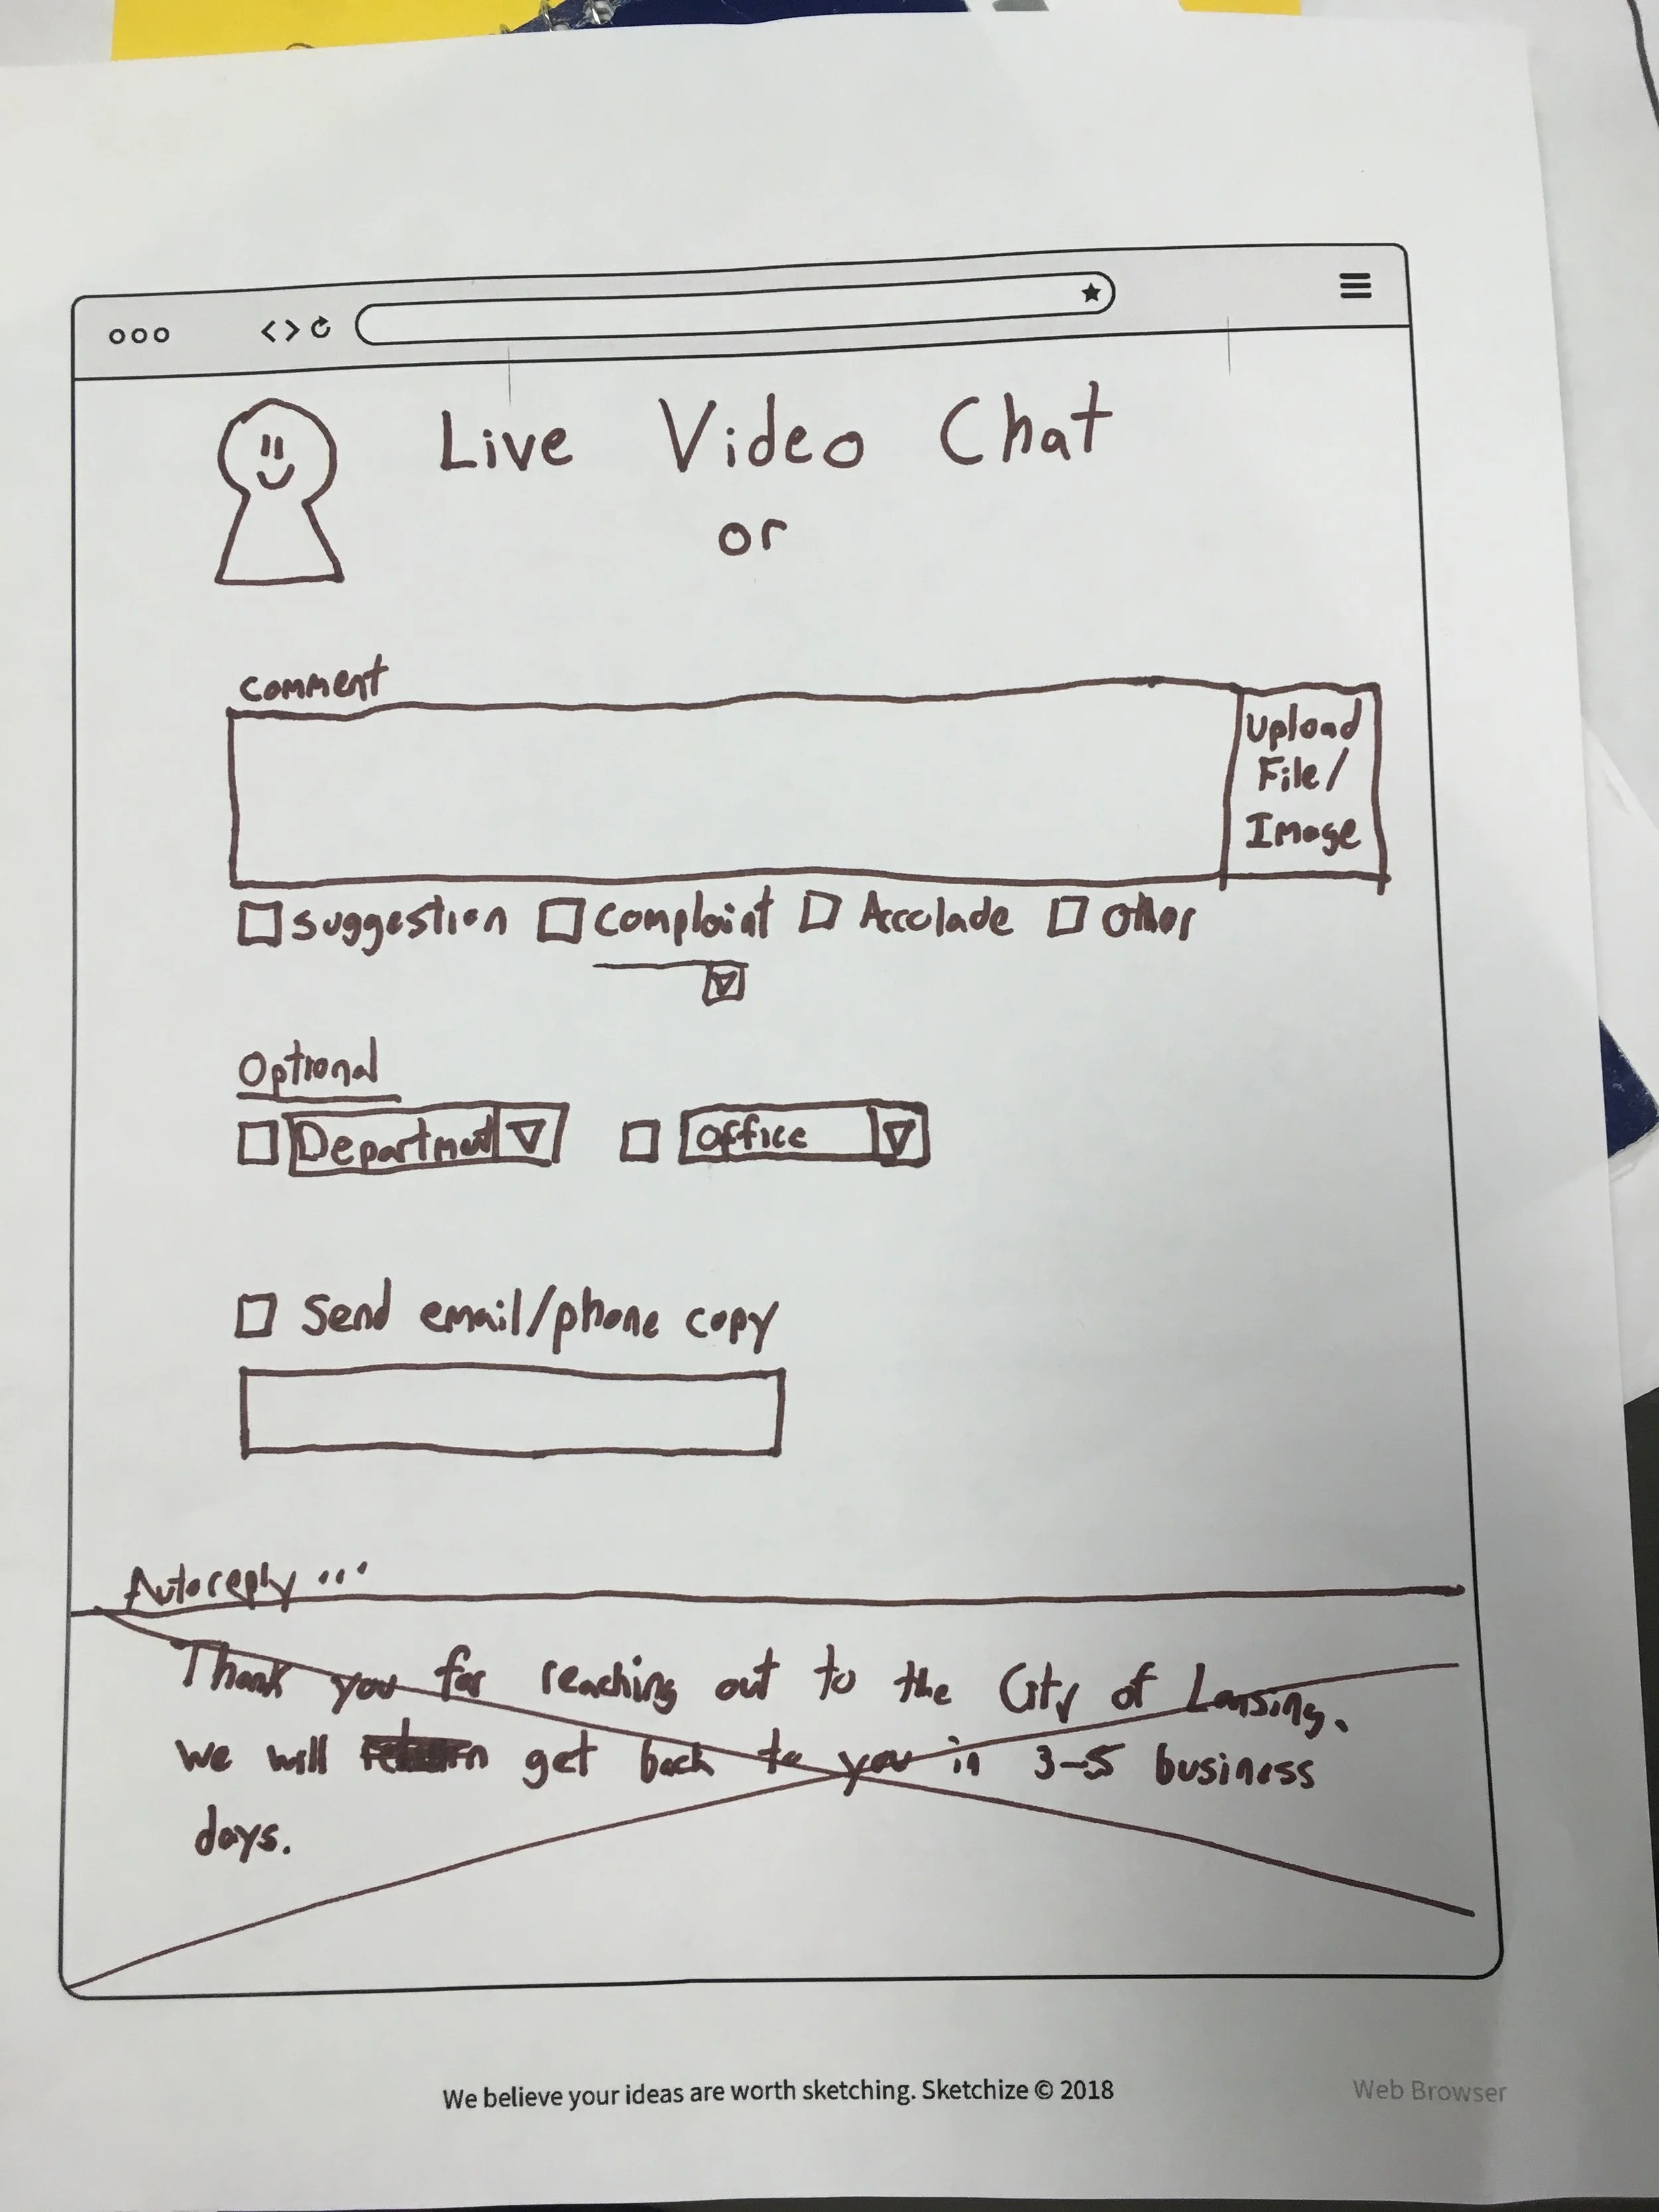 Live Video Chat
or
Comment
Upload
File/
Image
Suggestion Complaint Accolade Other
Optional
Department Office
Send email/phone copy
Autoreply ...
Thank you for reaching out to the City of Lansing.
We will get back to you in 3-5 business
days.
We believe your ideas are worth sketching. Sketchize © 2018
Web Browser